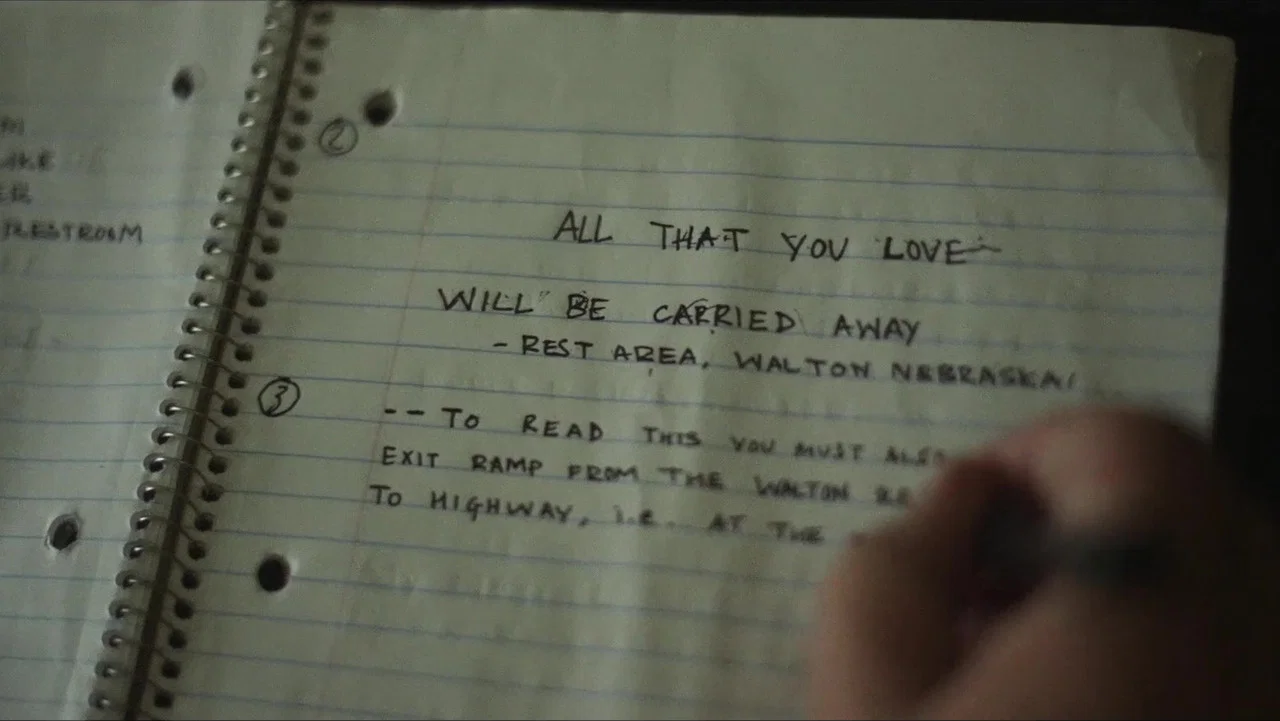 RESTROOM
②
ALL THAT YOU LOVE
WILL BE CARRIED AWAY
- REST AREA, WALTON NEBRASKA
③
-- TO READ THIS YOU MUST ALSO
EXIT RAMP FROM THE WALTON
TO HIGHWAY, i.e. AT THE